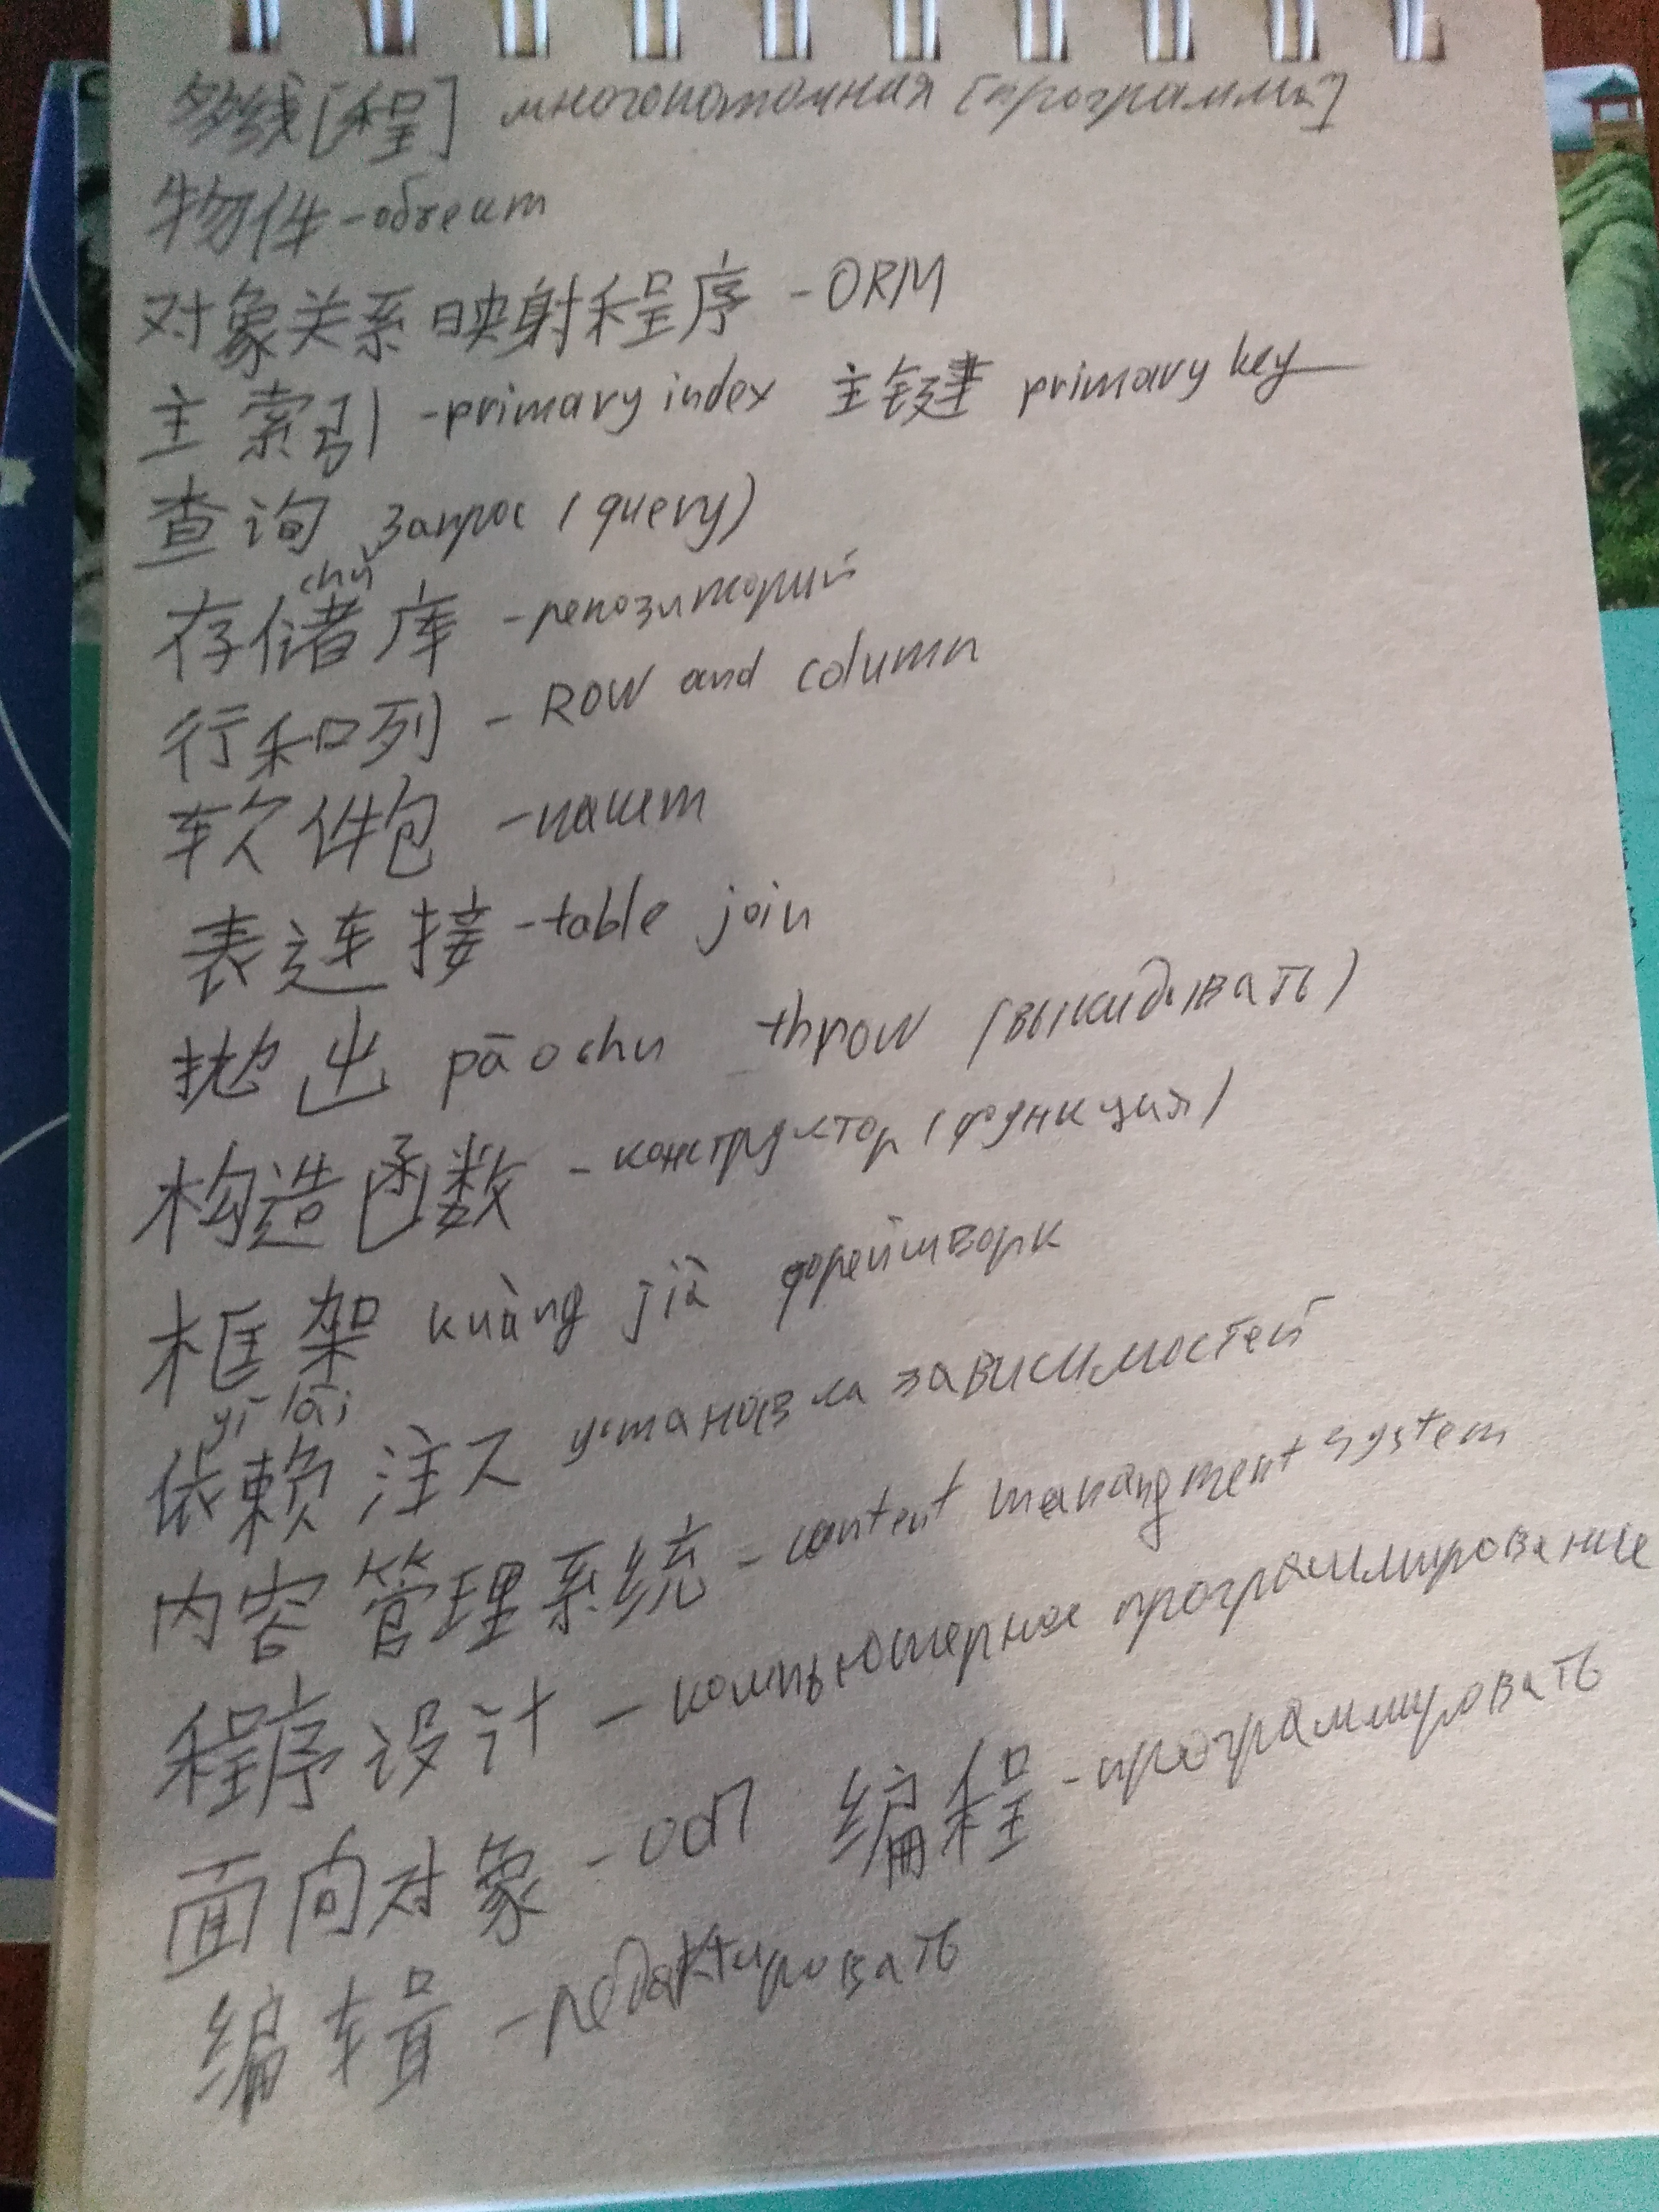 多线[程] многопоточная [программа]
物件 - обьект
对象关系映射程序 - ORM
主索引 - primary index 主键 primary key
查询 запрос (query)
chǔ
存储库 - репозиторий
行和列 - ROW and column
软件包 - пакет
表连接 - table join
抛出 pāo chu throw (выкидывать)
构造函数 - конструктор (функция)
框架 kuàng jià фреймворк
yī lài
依赖注入 установка зависимостей
内容管理系统 - content manangment system
程序设计 - компьютерное программирование
面向对象 - ООП 编程 - программировать
编辑 - редактировать